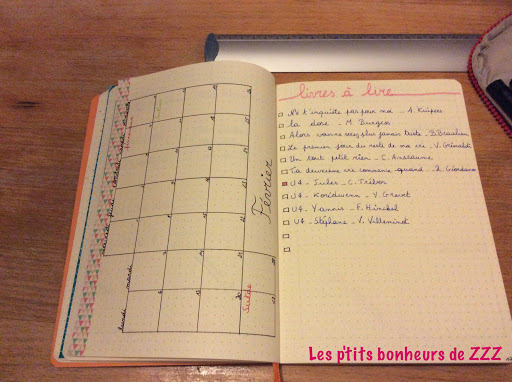 Février
lundi
mardi
Solde
livres à lire
Ne t'inquiète pas pour moi _ A. Kuipers
la dose _ M. Burgess
Alors vous serez plus jamais triste _ B. Beaulieu
Le premier jour du reste de ma vie _ V. Grimaldi
Un tout petit rien _ C. Anssaume
Ta deuxième vie commence quand _ R. Giordano
U4 _ Jules _ C. Trébor
U4 _ Koridwen _ Y. Grevet
U4 _ Yannis _ F. Hinckel
U4 _ Stéphane _ V. Villeminot
Les p'tits bonheurs de ZZZ